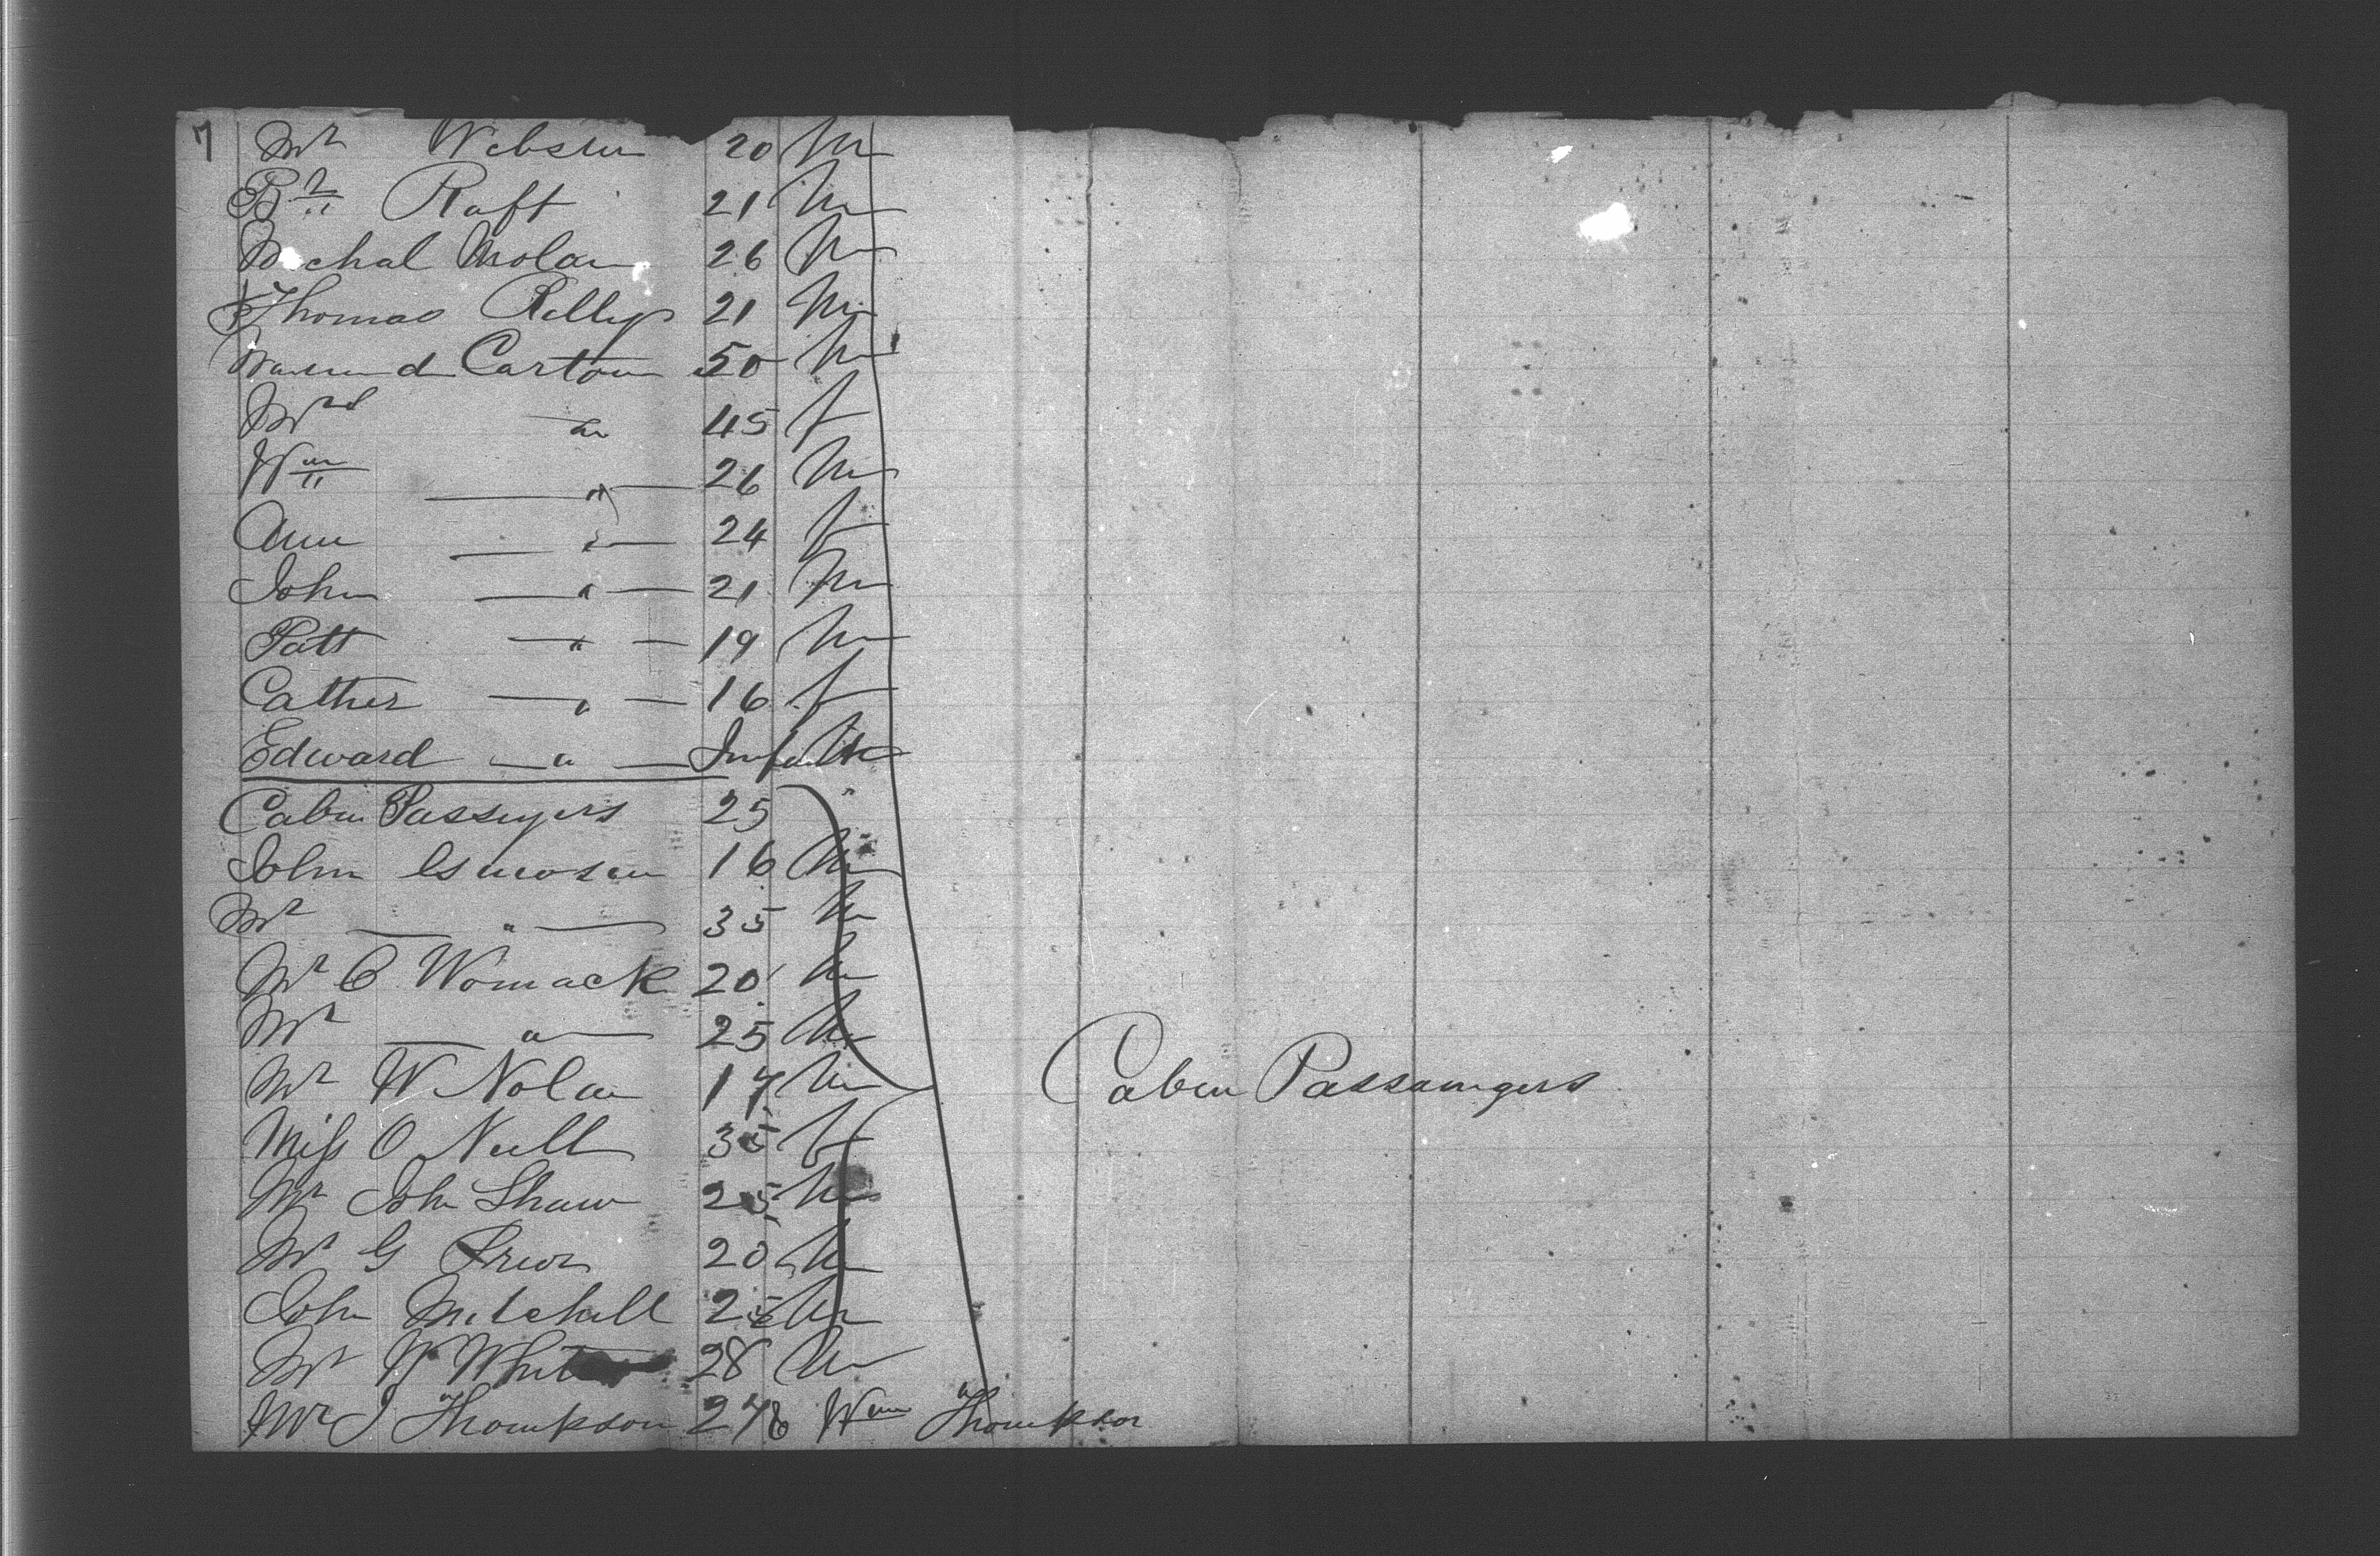 7 Mr Webster 20 M
Raft 21 M
Michal Nolan 26 M
Thomas Relly 21 M
Carton 50 M
Mrs do 45 f
Wm " 26 M
Ann " 24 f
John " 21 M
Patt " 19 M
Cather " 16 f
Edward " Infant M
Cabin Passengers 25 "
John 16 M
Mr " 35 M
Mr C Womack 20 M
Mr " 25 M
Mr W Nolan 17 M
Cabin Passaingers
Miss O Neill 35 f
Mr John Shaw 25 M
Mr G 20 M
John Mitchell 25 M
Mr W White 28 M
Mr J Thompson 27 & Wm Thompson